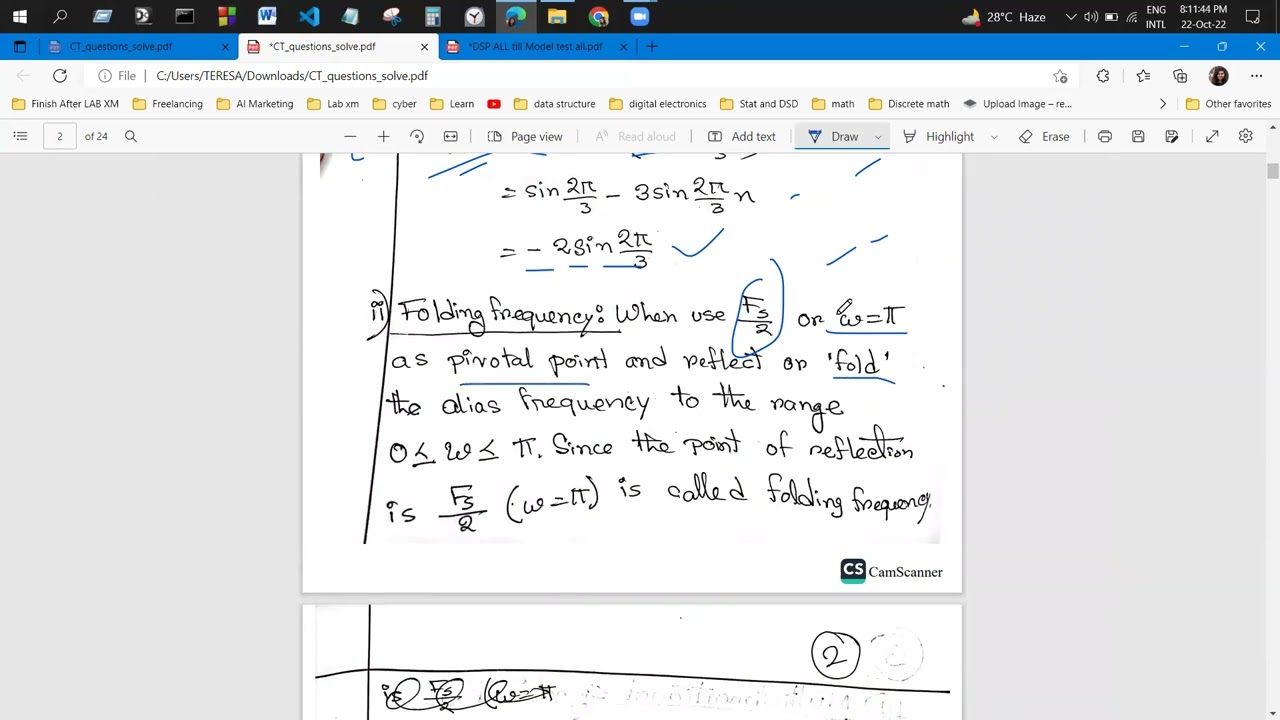 28°C Haze
ENG
INTL
8:11:44 PM
22-Oct-22
CT_questions_solve.pdf
*CT_questions_solve.pdf
*DSP ALL till Model test all.pdf
File
C:/Users/TERESA/Downloads/CT_questions_solve.pdf
Finish After LAB XM
Freelancing
AI Marketing
Lab xm
cyber
Learn
data structure
digital electronics
Stat and DSD
math
Discrete math
Upload Image – re...
Other favorites
2 of 24
Page view
Read aloud
Add text
Draw
Highlight
Erase
= sin 2π/3 - 3sin 2π/3 n
= - 2sin 2π/3
ii) Folding frequency: When use Fs/2 or ω=π
as pivotal point and reflect or 'fold'
the alias frequency to the range
0 ≤ ω ≤ π. Since the point of reflection
is Fs/2 (ω=π) is called folding frequency.
CS CamScanner
2
is Fs/2 (ω=π